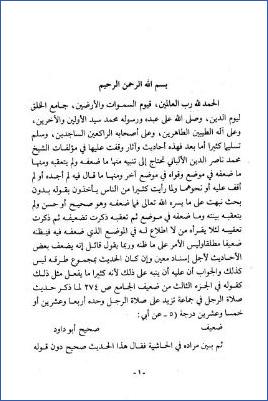 بسم الله الرحمن الرحيم
الحمد لله رب العالمين، قيوم السموات والأرضين، جامع الخلق
ليوم الدين، وصلى الله على عبده ورسوله محمد سيد الأولين والآخرين،
وعلى آله الطيبين الطاهرين، وعلى أصحابه الراكعين الساجدين، وسلم
تسليما كثيرا أما بعد فهذه أحاديث وآثار وقفت عليها في مؤلفات الشيخ
محمد ناصر الدين الألباني تحتاج إلى تنبيه منها ما ضعفه ولم يتعقبه ومنها
ما ضعفه في موضع وقواه في موضع آخر ومنها ما قال فيه لم أجده أو لم
أقف عليه أو نحوهما ولما رأيت كثيرا من الناس يأخذون بقوله بدون
بحث نبهت على ما يسره الله تعالى لي فما ضعفه وهو صحيح أو حسن ولم
يتعقبه بينته وما ضعفه في موضع ثم تعقبه ذكرت تضعيفه ثم ذكرت
تعقيبه لئلا يقرأه من لا اطلاع له في الموضع الذي ضعفه فيه فيظنه
ضعيفا مطلقا وليس الأمر على ما ظنه وربما يقول قائل إنه يضعف بعض
الأحاديث لأجل إسناد معين وإن كان الحديث بمجموع طرقه ليس
كذلك والجواب أن عليه أن ينبه على ذلك لأنه كثيرا ما يفعل مثل ذلك
كقوله في الجزء الثالث من ضعيف الجامع ص ٢٧٤ لما ذكر حديث
صلاة الرجل في جماعة تزيد على صلاة الرجل وحده أربعا وعشرين أو
خمسا وعشرين درجة (٥ – عن أبي:
ضعيف صحيح أبو داود
ثم بين مراده في الحاشية فقال هذا الحديث صحيح دون قوله
-١-